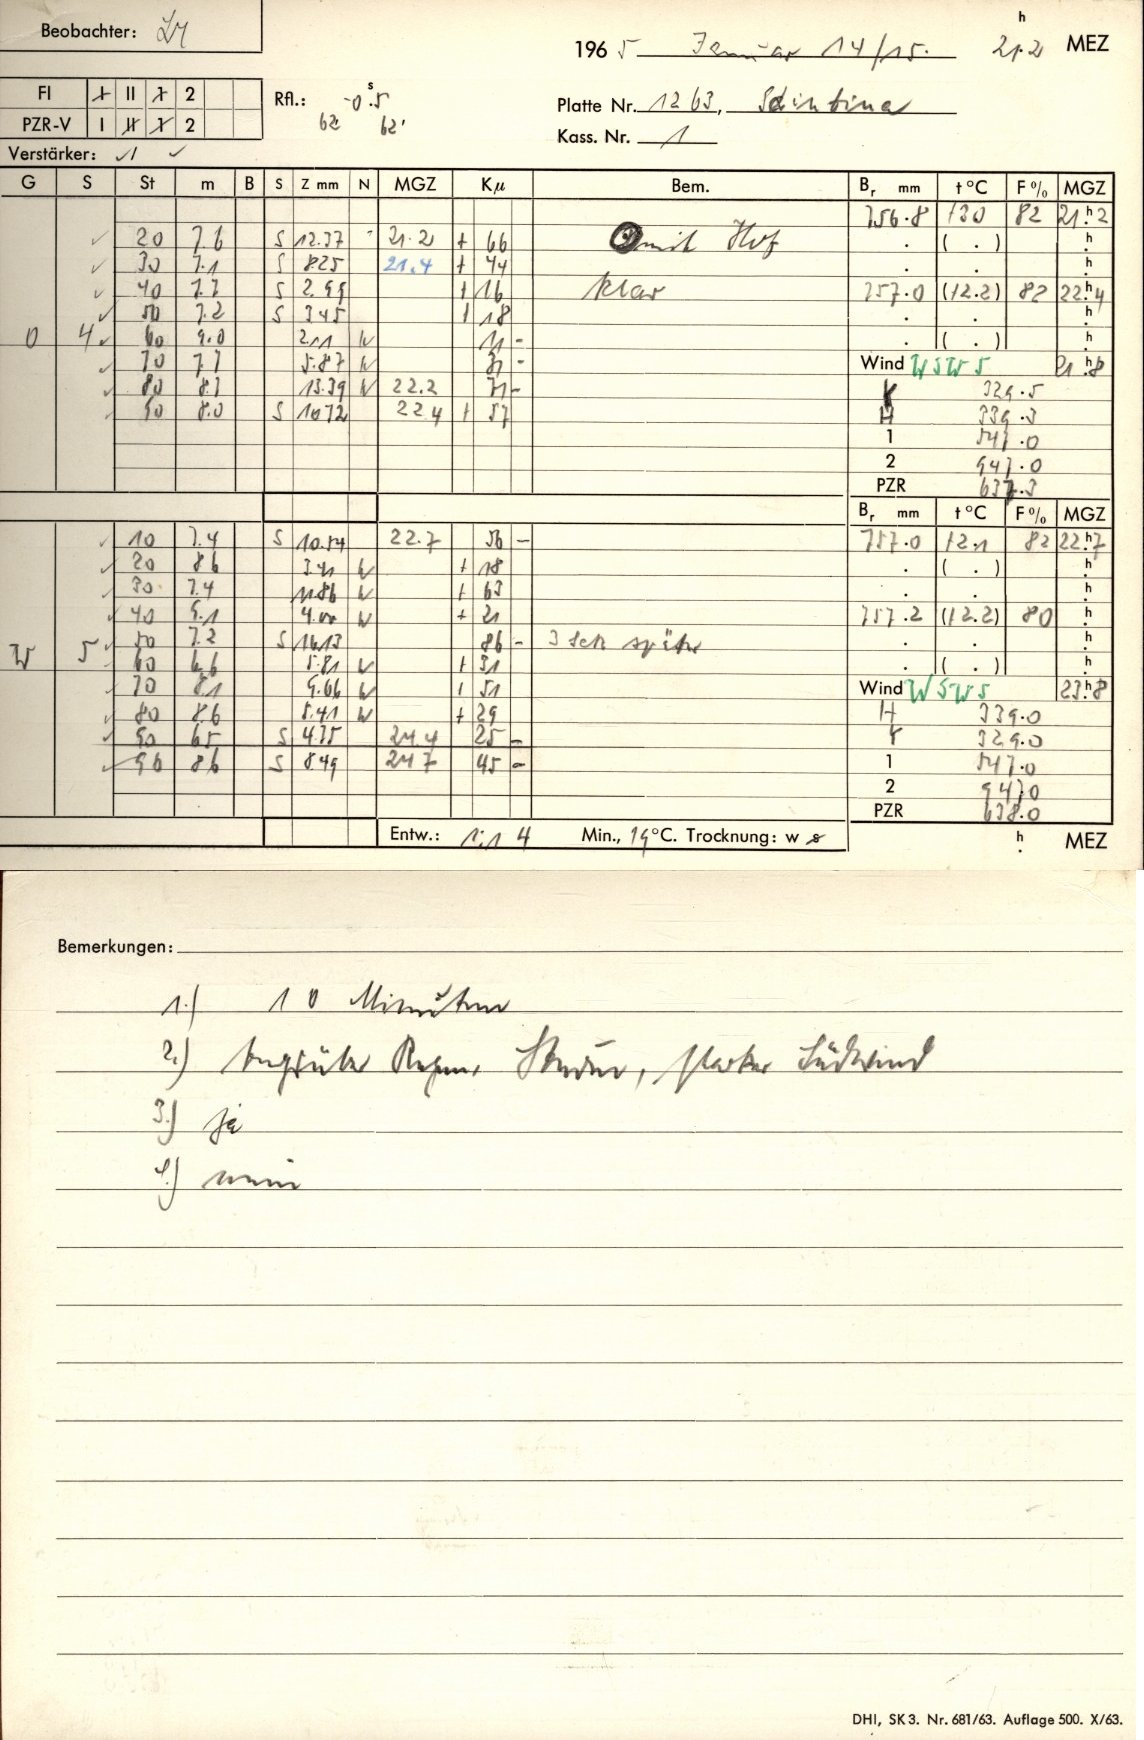 Beobachter:
h
1965 Januar 14/15. 21.2 MEZ
FI I II 1 2
PZR-V I II 1 2
Rfl.: -0.5 s
62 62
Platte Nr. 1263,
Kass. Nr. 1
Verstärker: 1
G S St m B S Z mm N MGZ Kμ Bem. Br mm t °C F % MGZ
756.8 130 82 21.h2
20 7.6 S 12.37 21.2 + 66 mit Hof . ( . ) h
30 7.1 S 8.25 21.4 + 44 . . h
40 7.7 S 2.99 + 16 klar 757.0 (12.2) 82 22.h4
50 7.2 S 3.45 + 18 . . h
O 4 60 9.0 2.11 N 11 - . ( . ) h
70 7.7 5.87 N 31 - Wind WSW 5 21.h8
80 8.7 13.39 N 22.2 71 - 329.5
90 8.0 S 10.72 22.4 + 57 H 339.3
1 547.0
2 947.0
PZR 637.3
Br mm t °C F % MGZ
10 7.4 S 10.54 22.7 56 - 757.0 12.1 82 22.h7
20 8.6 3.41 N + 18 . ( . ) h
30 7.4 11.86 N + 63 . . h
40 9.1 4.00 N + 21 757.2 (12.2) 80 h
50 7.2 S 16.13 86 - 3 sek später . . h
W 5 60 6.6 5.81 N + 31 . ( . ) h
70 8.1 9.66 N + 51 Wind WSW 5 23.h8
80 8.6 5.41 N + 29 H 339.0
90 6.5 S 4.75 24.4 25 - 329.0
96 8.6 S 8.49 24.7 45 - 1 547.0
2 947.0
PZR 638.0
Entw.: 4 Min., 19 °C. Trocknung: w s h MEZ
Bemerkungen:
1.) 10 Minuten
2.) Regen, Sturm, starker Südwind
3.) ja
4.) nein
DHI, SK 3. Nr. 681/63. Auflage 500. X/63.